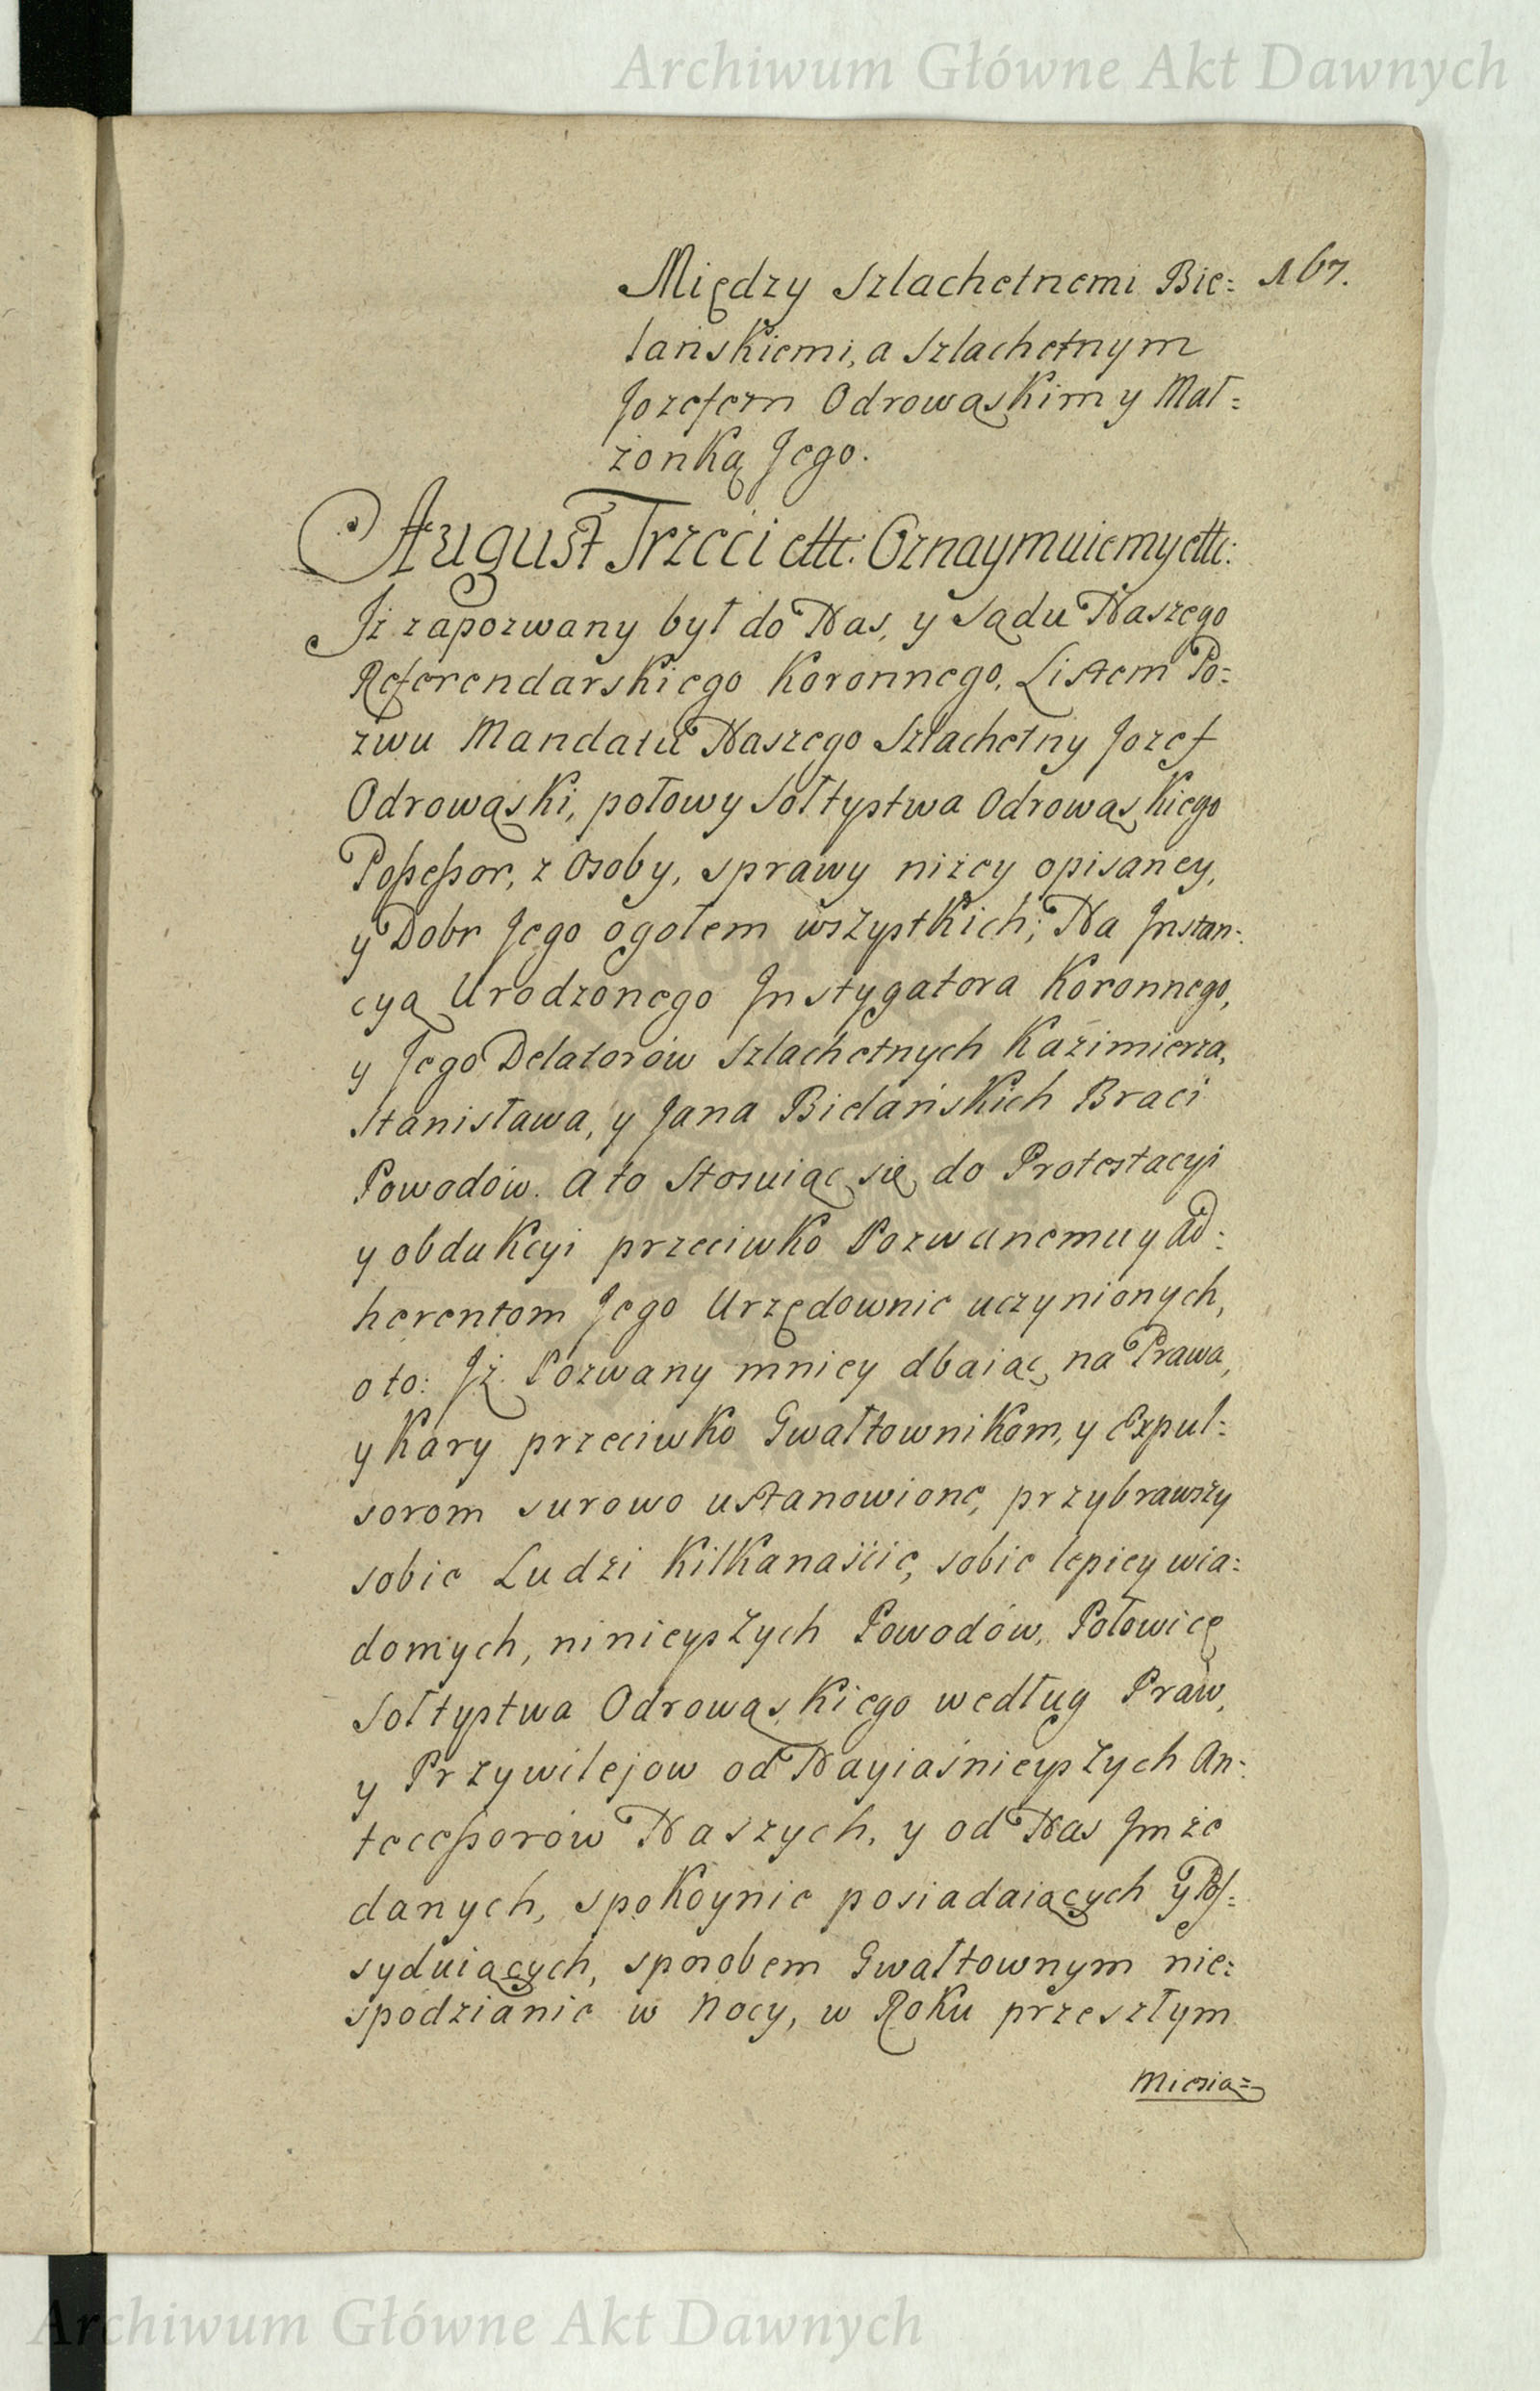 Archiwum Główne Akt Dawnych
Między Szlachetnemi Bie= 167.
lańskiemi, a Szlachetnym
Jozefem Odrowąskim y Mał=
żonką Jego.
August Trzeci ettc: Oznaymuiemy ettc:
Jż zapozwany był do Nas, y Sądu Naszego
Referendarskiego Koronnego, Listem Po=
zwu Mandatu Naszego Szlachetny Jozef
Odrowąski, połowy Sołtystwa Odrowąskiego
Possessor, z Osoby, sprawy niżey opisaney,
y Dobr Jego ogołem wszystkich; Na Jnstan=
cyą Urodzonego Jnstygatora Koronnego,
y Jego Delatorów Szlachetnych Kaźimierza,
Stanisława, y Jana Bielańskich Braci
Powodów. a to Stosuiąc się do Protestacyi
y obdukcyi przeciwko Pozwanemu y Ad=
herentom Jego Urzędownie uczynionych,
o to: Jż Pozwany mniey dbaiąc na Prawa,
y Kary przeciwko Gwałtownikom, y Expul=
sorom surowo ustanowione, przybrawszy
sobie Ludzi Kilkanaście, sobie lepiey wia=
domych, ninieyszych Powodów, Połowicę
Sołtystwa Odrowąskiego według Praw,
y Przywilejow od Nayiaśnieyszych An=
tecessorów Naszych, y od Nas Jmże
danych, spokoynie posiadaiących y Pos=
syduiących, sposobem Gwałtownym nie=
spodzianie w Nocy, w Roku przeszłym
Miesią=
Archiwum Główne Akt Dawnych